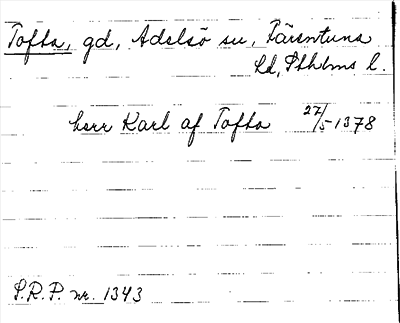 Tofta, gd, Adelsö sn, Färentuna
hd, Sthlms l.
herr Karl af Tofta 27/5 1378
S.R.P. nr. 1343